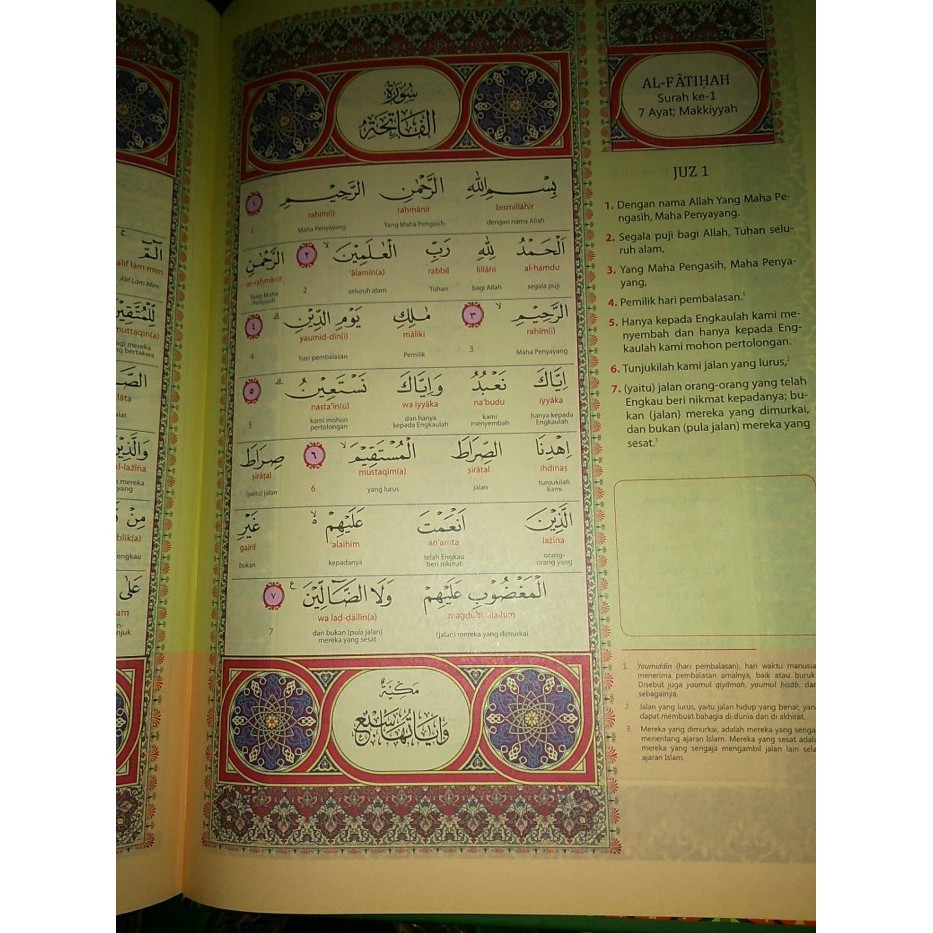 سُوْرَةُ
الْفَاتِحَةِ
بِسْمِ اللّٰهِ الرَّحْمٰنِ الرَّحِيْمِ ١
bismillāhir raḥmānir raḥīm(i)
dengan nama Allah Yang Maha Pengasih Maha Penyayang 1
اَلْحَمْدُ لِلّٰهِ رَبِّ الْعٰلَمِيْنَۙ ٢ الرَّحْمٰنِ
al-ḥamdu lillāhi rabbil ‘ālamīn(a) ar-raḥmānir
segala puji bagi Allah Tuhan seluruh alam 2 Yang Maha Pengasih
الرَّحِيْمِۙ ٣ مٰلِكِ يَوْمِ الدِّيْنِۗ ٤
raḥīm(i) māliki yaumid-dīn(i)
Maha Penyayang 3 Pemilik hari pembalasan 4
اِيَّاكَ نَعْبُدُ وَاِيَّاكَ نَسْتَعِيْنُۗ ٥
iyyāka na‘budu wa iyyāka nasta‘īn(u)
hanya kepada Engkaulah kami menyembah dan hanya kepada Engkaulah kami mohon pertolongan 5
اِهْدِنَا الصِّرَاطَ الْمُسْتَقِيْمَۙ ٦ صِرَاطَ
ihdinaṣ ṣirāṭal mustaqīm(a) ṣirāṭal
tunjukilah kami jalan yang lurus 6 (yaitu) jalan
الَّذِيْنَ اَنْعَمْتَ عَلَيْهِمْ ەۙ غَيْرِ
lażīna an‘amta ‘alaihim gairil
orang-orang yang telah Engkau beri nikmat kepadanya bukan
الْمَغْضُوْبِ عَلَيْهِمْ وَلَا الضَّاۤلِّيْنَ ࣖ ٧
magḍūbi ‘alaihim wa laḍ-ḍāllīn(a)
(jalan) mereka yang dimurkai dan bukan (pula jalan) mereka yang sesat 7
مَكِّيَّةٌ
وَاٰيَاتُهَا سَبْعٌ
AL-FĀTIḤAH
Surah ke-1
7 Ayat; Makkiyyah
JUZ 1
1. Dengan nama Allah Yang Maha Pe-
ngasih, Maha Penyayang.
2. Segala puji bagi Allah, Tuhan selu-
ruh alam,
3. Yang Maha Pengasih, Maha Penya-
yang,
4. Pemilik hari pembalasan.¹
5. Hanya kepada Engkaulah kami me-
nyembah dan hanya kepada Eng-
kaulah kami mohon pertolongan.
6. Tunjukilah kami jalan yang lurus,²
7. (yaitu) jalan orang-orang yang telah
Engkau beri nikmat kepadanya; bu-
kan (jalan) mereka yang dimurkai,
dan bukan (pula jalan) mereka yang
sesat.³
1 Yaumiddīn (hari pembalasan), hari waktu manusia
menerima pembalasan amalnya, baik atau buruk.
Disebut juga yaumul qiyāmah, yaumul ḥisāb, dan
sebagainya.
2 Jalan yang lurus, yaitu jalan hidup yang benar, yang
dapat membuat bahagia di dunia dan di akhirat.
3 Mereka yang dimurkai, adalah mereka yang sengaja
menentang ajaran Islam. Mereka yang sesat adalah
mereka yang sengaja mengambil jalan lain selain
ajaran Islam.
الۤمّۤ
alif lām mīm
Alif Lām Mīm
لِّلْمُتَّقِيْنَ
muttaqīn(a)
وَالَّذِيْنَ
مِنْ
عَلٰى